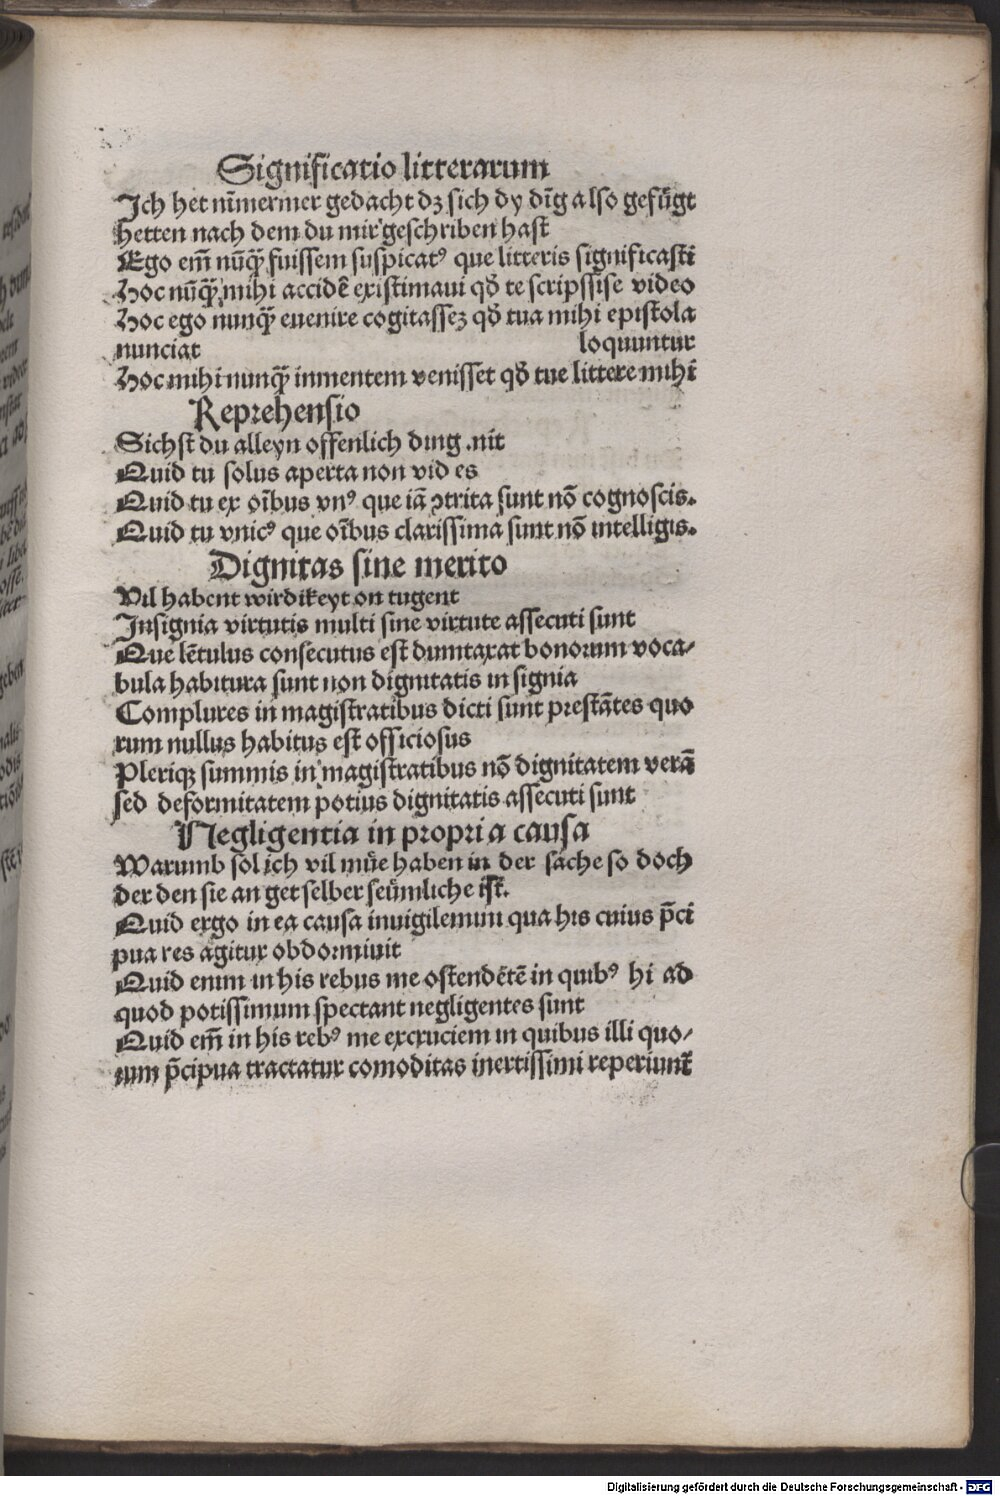 Significatio litterarum
Ich het nīmermer gedacht dz sich dy dīg also gefügt
hetten nach dem du mir geschriben hast
Ego em̄ nūq̄ fuissem suspicatꝰ que litteris significasti
Hoc nūq̄ mihi accidē existimaui qđ te scripssise video
Hoc ego nunq̄ euenire cogitassez qđ tua mihi epistola
nunciat loquuntur
Hoc mihi nunq̄ inmentem venisset qđ tue littere mihi
Reprehensio
Sichst du alleyn offenlich ding .nit
Quid tu solus aperta non vid es
Quid tu ex oībus vnꝰ que iā ꝯtrita sunt nō cognoscis.
Quid tu vnicꝰ que oībus clarissima sunt nō intelligis.
Dignitas sine merito
Vil habent wirdikeyt on tugent
Insignia virtutis multi sine virtute assecuti sunt
Que lētulus consecutus est dumtaxat bonorum voca⸗
bula habitura sunt non dignitatis in signia
Complures in magistratibus dicti sunt prestātes quo
rum nullus habitus est officiosus
Pleriqꝫ summis in magistratibus nō dignitatem verā
sed deformitatem potius dignitatis assecuti sunt
Negligentia in propria causa
Warumb sol ich vil müe haben in der sache so doch
der den sie an get selber seümliche ist.
Quid ergo in ea causa inuigilemun qua his cuius p̄ci
pua res agitur obdormiuit
Quid enim in his rebus me ostendētē in quibꝰ hi ad
quod potissimum spectant negligentes sunt
Quid em̄ in his rebꝰ me excruciem in quibus illi quo⸗
rum p̄cipua tractatur comoditas inertissimi reperiunt̄
Digitalisierung gefördert durch die Deutsche Forschungsgemeinschaft - DFG